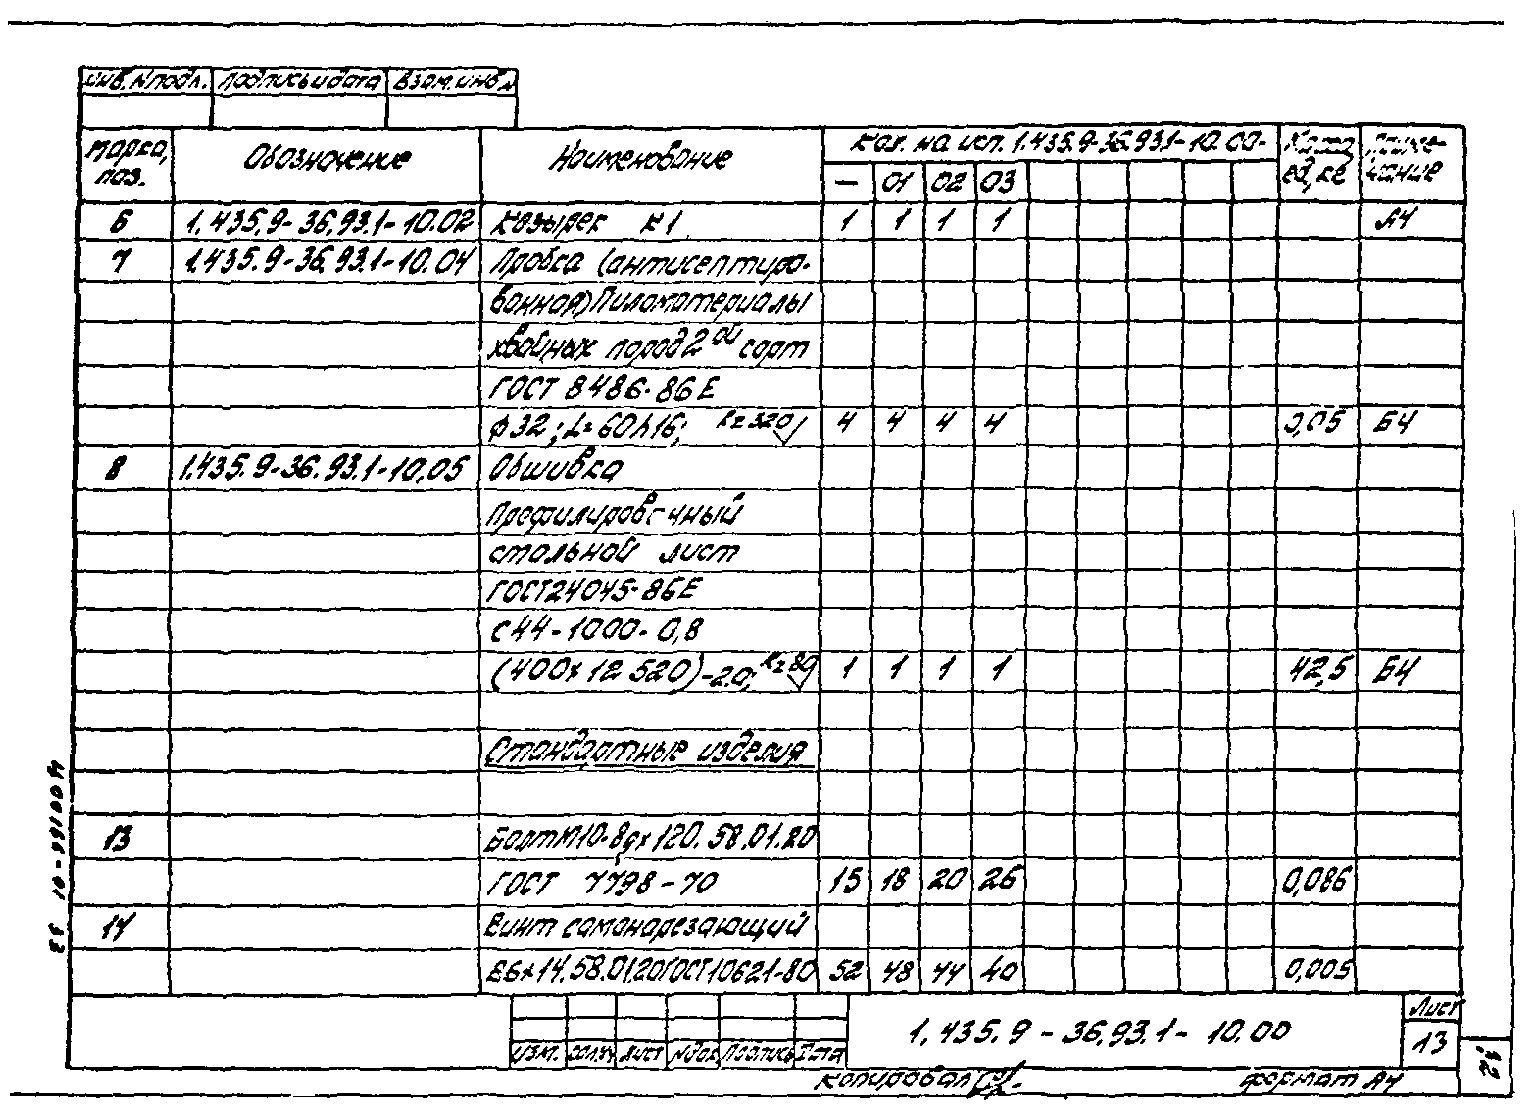 Инв. N подл. Подпись и дата Взам. инв. N
Марка, поз. Обозначение Наименование Кол. на исп. 1.435.9-36.93.1-10.00- Масса ед, кг Приме-чание
— 01 02 03
6 1.435.9-36.93.1-10.02 Козырек К1 1 1 1 1 А4
7 1.435.9-36.93.1-10.04 Пробка (антисептиро-
ванная) Пиломатериалы
хвойных пород 2ой сорт
ГОСТ 8486-86Е
ф32; L=60h16; Rz320 4 4 4 4 0,05 Б4
8 1.435.9-36.93.1-10.05 Обшивка
Профилировочный
стальной лист
ГОСТ 24045-86Е
С44-1000-0,8
(400х12 520)-2.0; Rz80 1 1 1 1 42,5 Б4
Стандартные изделия
13 Болт М10-8gх120.58.01.20
ГОСТ 7798-70 15 18 20 26 0,086
14 Винт самонарезающий
В6х14.58.0120 ГОСТ 10621-80 52 48 44 40 0,005
1.435.9-36.93.1-10.00
Лист
13
Изм. Кол.уч Лист Nдок Подпись Дата
Копировал
формат А4